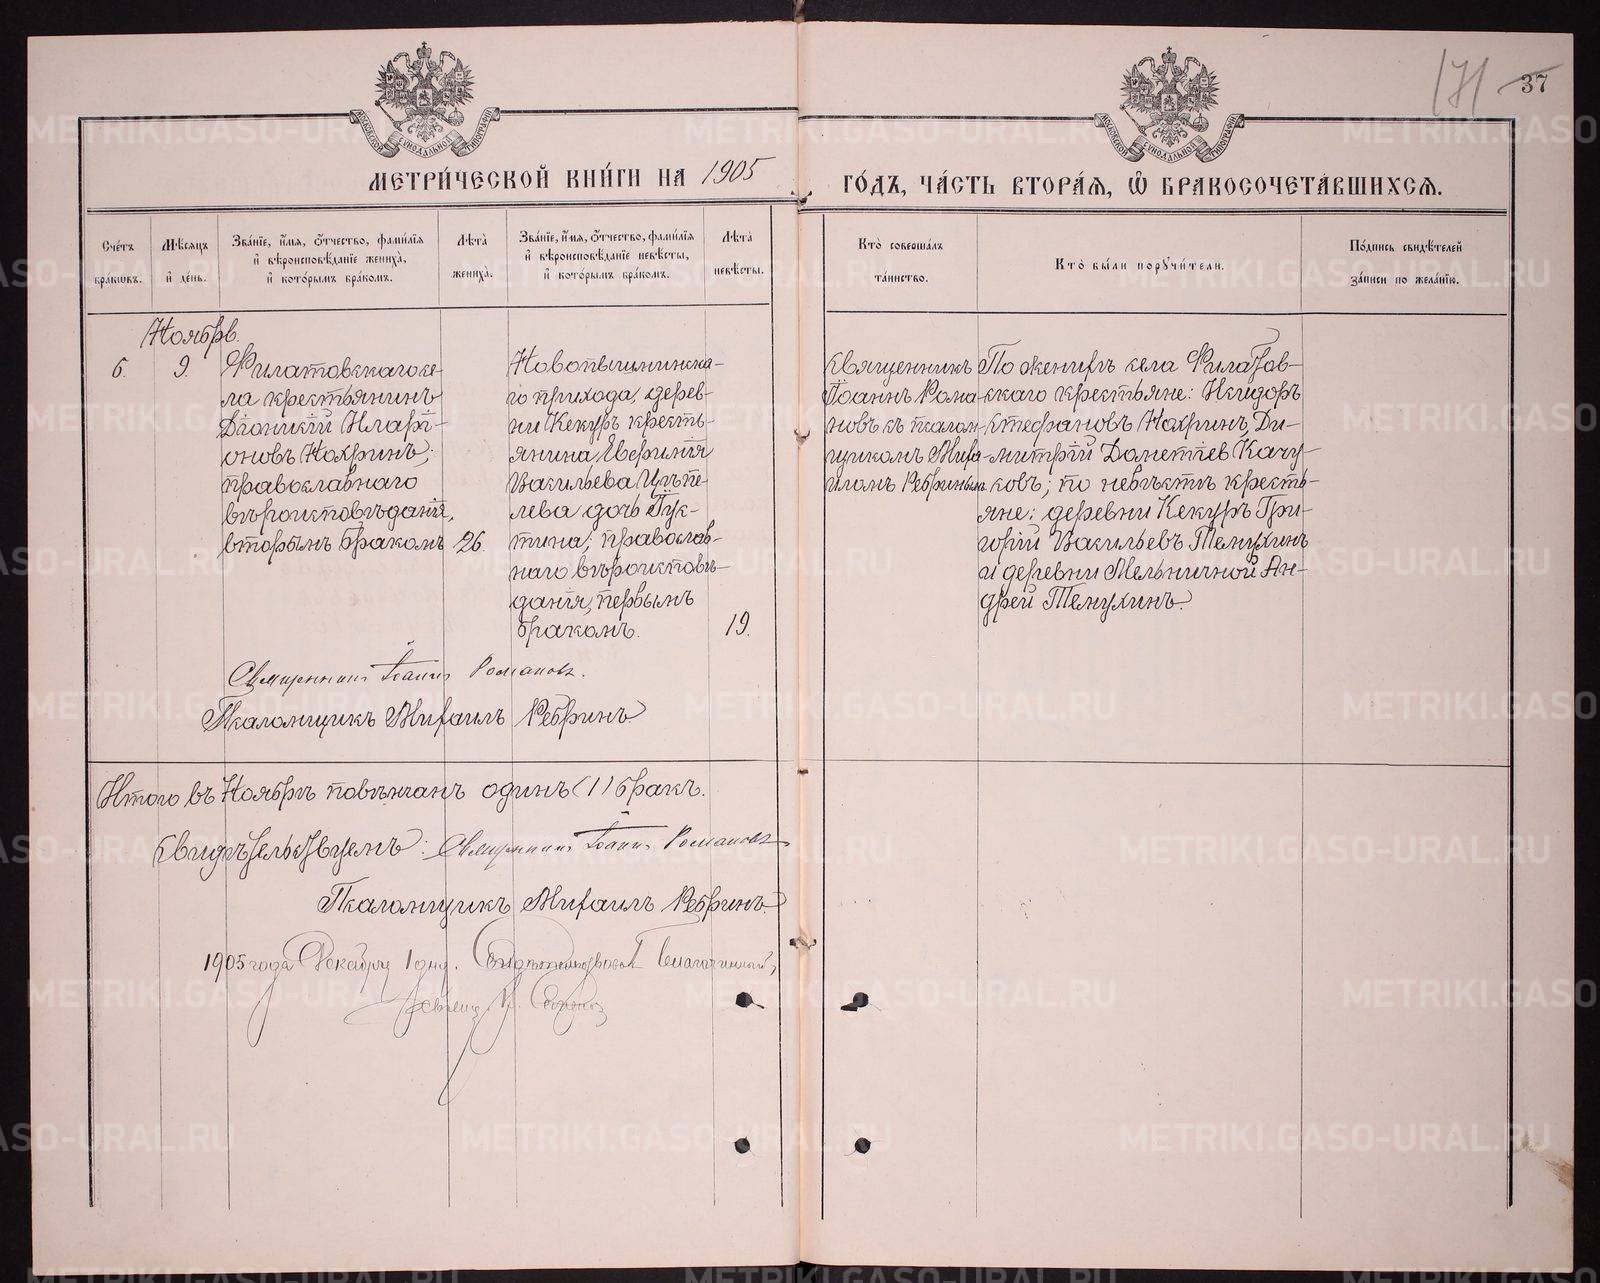 171 37
МОСКОВСКОЙ СѴНОДАЛЬНОЙ ТИПОГРАФІИ
МОСКОВСКОЙ СѴНОДАЛЬНОЙ ТИПОГРАФІИ
МЕТРИ́ЧЕСКОЙ КНИ́ГИ НА 1905
ГО́ДЪ, ЧА́СТЬ ВТОРА́Ѧ, Ѽ БРАКОСОЧЕТА́ВШИХСѦ.
Сче́тъ бра́кѡвъ.
Мѣ́сяцъ и҆ де́нь.
Зва́нїе, и҆́мя, ѻ҆́тчество, фами́лїя и҆ вѣроисповѣ́данїе жениха̀, и҆ кото́рымъ бра́комъ.
Лѣ́та̀ жениха̀.
Зва́нїе, и҆́мя, ѻ҆́тчество, фами́лїя и҆ вѣроисповѣ́данїе невѣ́сты, и҆ кото́рымъ бра́комъ.
Лѣ́та̀ невѣ́сты.
Кто̀ соверша́лъ та́инство.
Кто̀ бы́ли порꙋчи́тели.
По́дпись свидѣ́телей за́писи по жела́нїю.
Ноябрь.
6.
9.
Филатовскаго се-
ла крестьянинъ
Діонисій Иларі-
оновъ Нохринъ,
православнаго
вѣроисповѣданія,
вторымъ бракомъ
26.
Новопышминска-
го прихода, дерев-
ни Кекуръ кресть-
янина Аверкія
Васильева Цѣпе-
лева дочь Іус-
тина; православ-
наго вѣроисповѣ-
данія, первымъ
бракомъ.
19.
Священникъ
Іоаннъ Рома-
новъ съ псалом-
щикомъ Миха-
иломъ Ребринымъ
По женихѣ села Филатов-
скаго крестьяне: Исидоръ
Стефановъ Нохринъ, Ди-
митрій Дометіевъ Качу-
ковъ; по невѣстѣ кресть-
яне: деревни Кекуръ Гри-
горій Васильевъ Темухинъ
и деревни Мельничной Ан-
дрей Темухинъ.
Священникъ Іоаннъ Романовъ.
Псаломщикъ Михаилъ Ребринъ
Итого въ Ноябрѣ повѣнчанъ одинъ (1) бракъ.
Свидѣтельствуемъ: Священникъ Іоаннъ Романовъ
Псаломщикъ Михаилъ Ребринъ.
1905 года Декабря 1 дня. Свидѣтельствовалъ Благочинный,
Священ.
METRIKI.GASO-URAL.RU